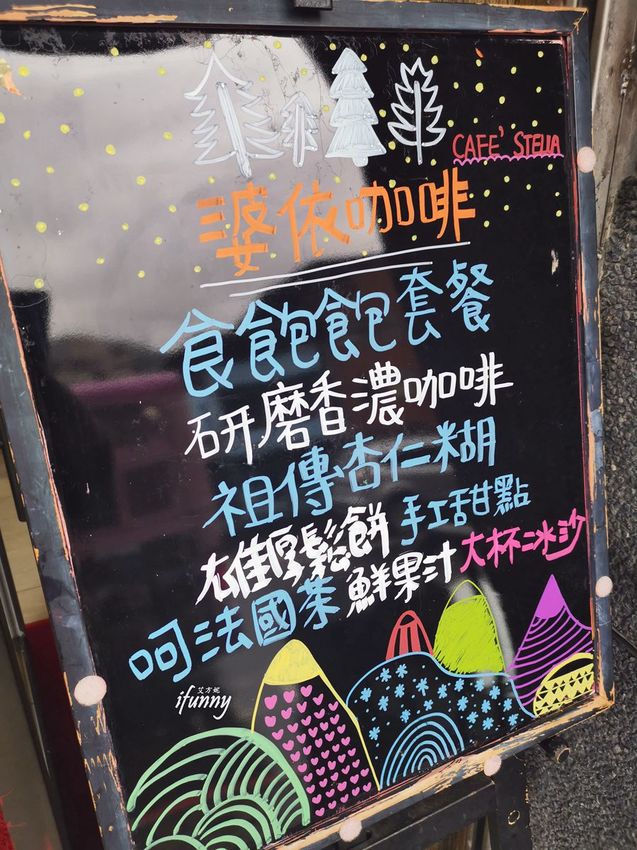 CAFE' STELLA
婆依咖啡
食飽飽套餐
研磨香濃咖啡
祖傳杏仁糊
雄厚鬆餅 手工甜點
呵法國茶 鮮果汁 大杯冰沙
艾方妮
ifunny